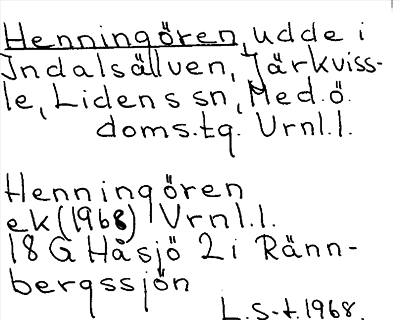 Henningören, udde i
Indalsälven, Järkviss-
le, Lidens sn, Med.ö.
doms.tg. Vrnl.l.
Henningören
ek (1968) Vrnl.l.
18 G Håsjö 2 i Ränn-
bergssjön
L.S-t.1968.